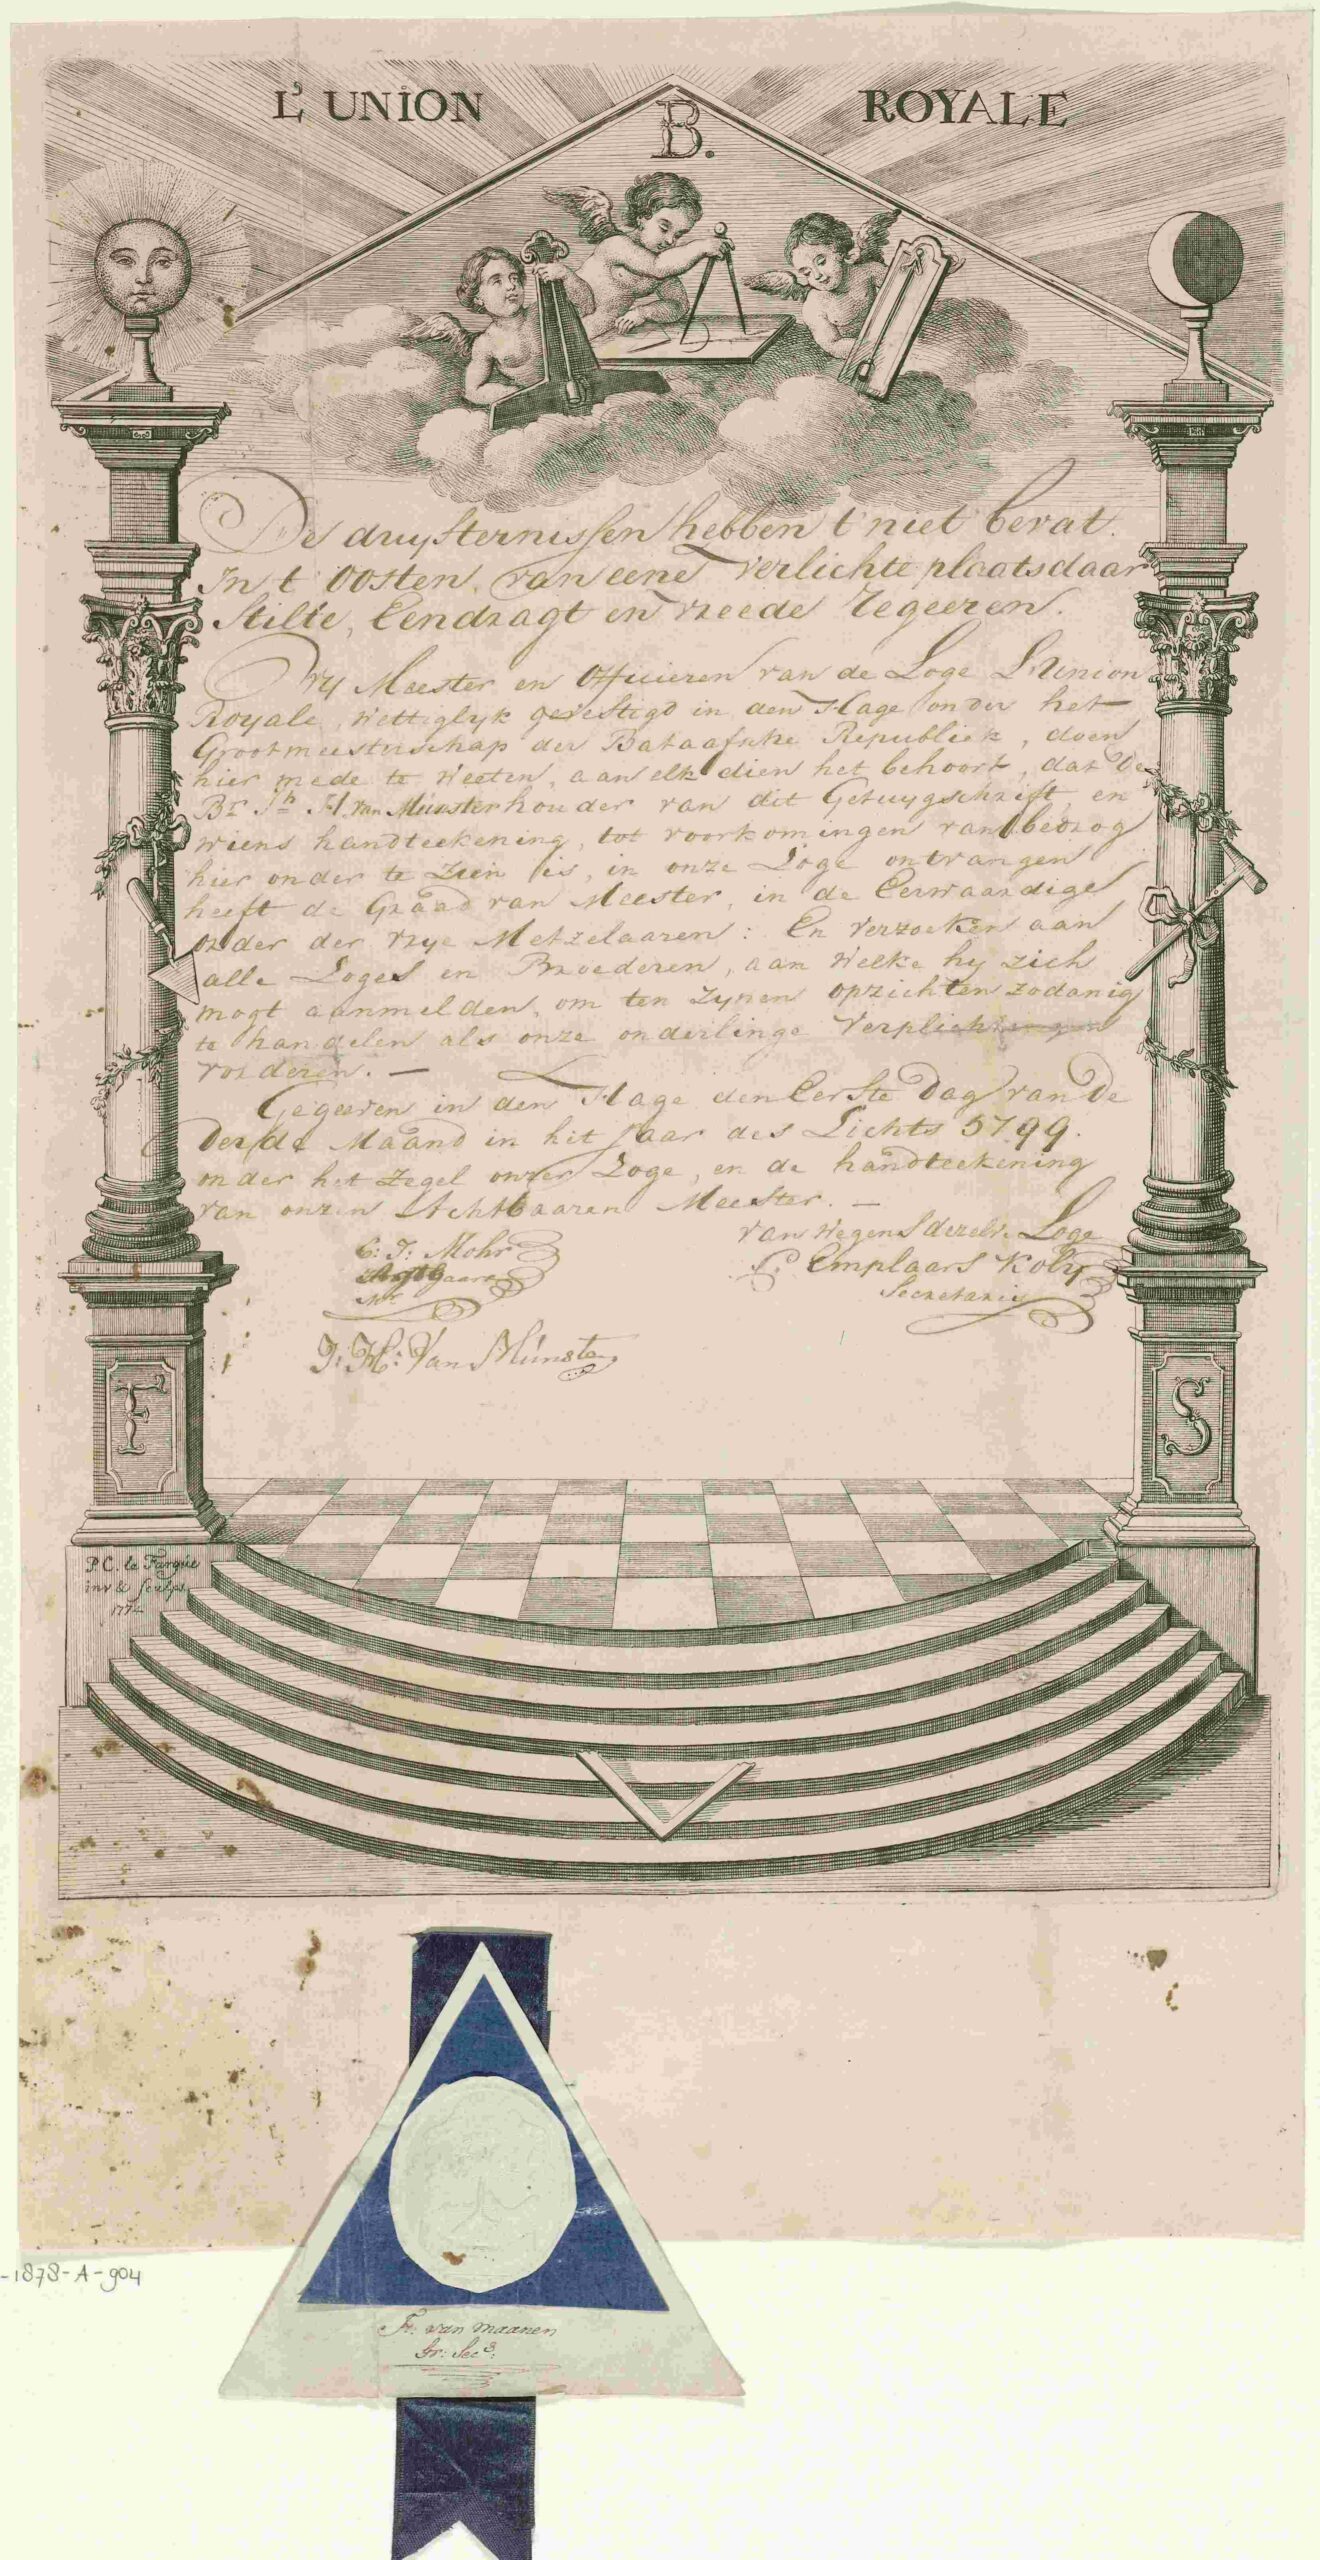 L'UNION ROYALE
B.
De duysternissen hebben t' niet bevat.
In t' Oosten van eene verlichte plaats daar
Stilte, Eendragt en vreede regeeren.
Wy Meester en Officieren van de Loge L'Union
Royale, Wettiglyk gevestigd in den Hage onder het
Grootmeesterschap der Bataafsche Republiek, doen
hier mede te Weeten, aan elk dien het behoort, dat de
Br. H. van Munster houder van dit Getuygschrift, en
wiens handteekening, tot voorkomingen van bedrog
hier onder te Zien is, in onze Loge ontvangen
heeft de Graad van Meester, in de Eerwaardige
order der vrye Metzelaaren: En verzoeken aan
alle Loges en Broederen, aan Welke hy zich
mogt aanmelden, om ten Zynen opzichten zodanig
te handelen als onze onderlinge Verplichtingen
vorderen. —
Gegeeven in den Hage den Eerste Dag van de
Derde Maand in het Jaar des Lichts 5799.
onder het Zegel onzer Loge, en de handteekening
van onzen Achtbaaren Meester. —
van Wegens dezelve Loge
C: J: Mohr
Emplaars Koby
Secretaris
J: H: Van Munster
F
S
P. C. la Fargue
inv & sculps.
177
-1878-A-904
F: van maanen
Gr: Secs: